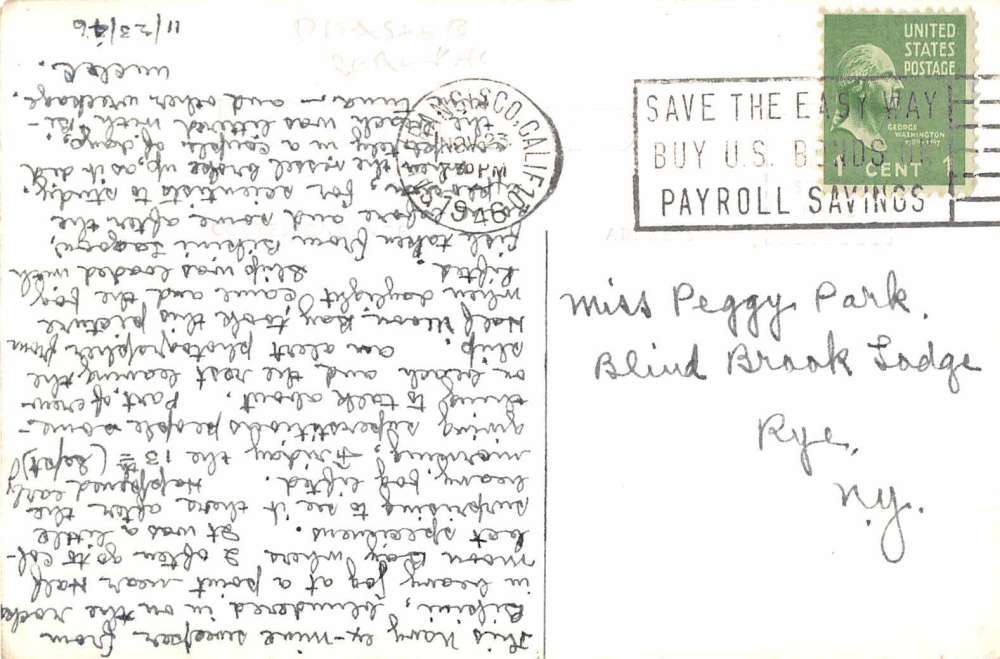 UNITED
STATES
POSTAGE
GEORGE
WASHINGTON
1 CENT 1
SAN FRANCISCO, CALIF.
NOV 23
1946
SAVE THE EASY WAY
BUY U.S. BONDS
PAYROLL SAVINGS
Miss Peggy Park.
Blind Brook Lodge
Rye,
N.Y.
This Navy ex-mine sweeper from
Bikini, blundered in on the rocks
in heavy fog at a point near Half
Moon Bay where I often go to col-
lect specimens. It was a little
surprising to see it there after the
heavy fog lifted. Happened early
morning, Friday the 13th (Sept)
giving superstitious people some-
thing to talk about. Part of crew
on beach and the rest leaving the
ship. An alert photographer from
Half Moon Bay took this picture
when daylight came and the fog
lifted. Ship was loaded with
fish taken from Bikini Lagoon,
some before and some after the
explosion, for scientists to study.
When the vessel broke up, as it did
completely in a couple of days,
the beach was littered with Bi-
kini tuna - and other wreckage.
11/23/46